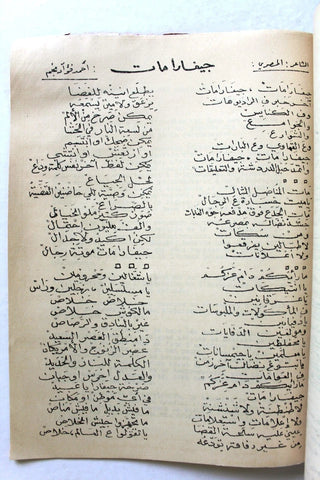 الشاعر: المصري: جيفارا مات : احمد فؤاد نجم
جيفارا مات .. جيفارا مات
آخر خبر في الراديوهات
و في الكنايس
و الجوامع
و الشوارع
و ع القهاوي و ع البارات
جيفارا مات جيفارا مات
مات المناضل المثال
يا ميت خسارة ع الرجال
مات الجدع فوق مدفعه جوه الغابات
جسد نضاله بمصرعه
و من سكات
لا طبالين يفرقعوا
و لا اعلانات
ما رأيكم دام عزكم
يا انتيكات
يا غرقانين
في المأكولات و الملبوسات
يا دفيانين
و مولعين الدفايات
يا محفلطين
يا ملمعين يا جيمسنات
ما رأيكم دام عزكم
جيفارا مات
لا طنطنة و لا شنشنة
و لا إعلامات و استعلامات
عيني عليه ساعة القضا
من غير رفاقه تودعه
يطلع انينه للفضا
يزعق ولا مين يسمعه
يمكن صرخ من الألم
من لسعة النار في الحشا
يمكن ضحك أو ابتسم
أو ارتعش أو انتشى
يمكن لفظ آخر نفس كلمة وداع
لجل الجياع
يمكن وصية للي حاضنين القضية
بالصراع
صور كتير ملو الخيال
و الف مليون احتمال
لكن اكيد ولا جدال
جيفارا مات موتة رجال
يا شغالين و محرومين
يا مسلسلين رجلين و راس
خلاص خلاص
مالكوش خلاص
غير بالبنادق و الرصاص
دا منطق العصر السعيد
عصر الزنوج و الامريكان
الكلمة للنار و الحديد
و العدل اخرس او جبان
صرخة جيفارا يا عبيد
في أي موطن او مكان
ما فيش بديل ما فيش مناص
يا تجهزوا جيش الخلاص
يا تقولوا ع العالم خلاص